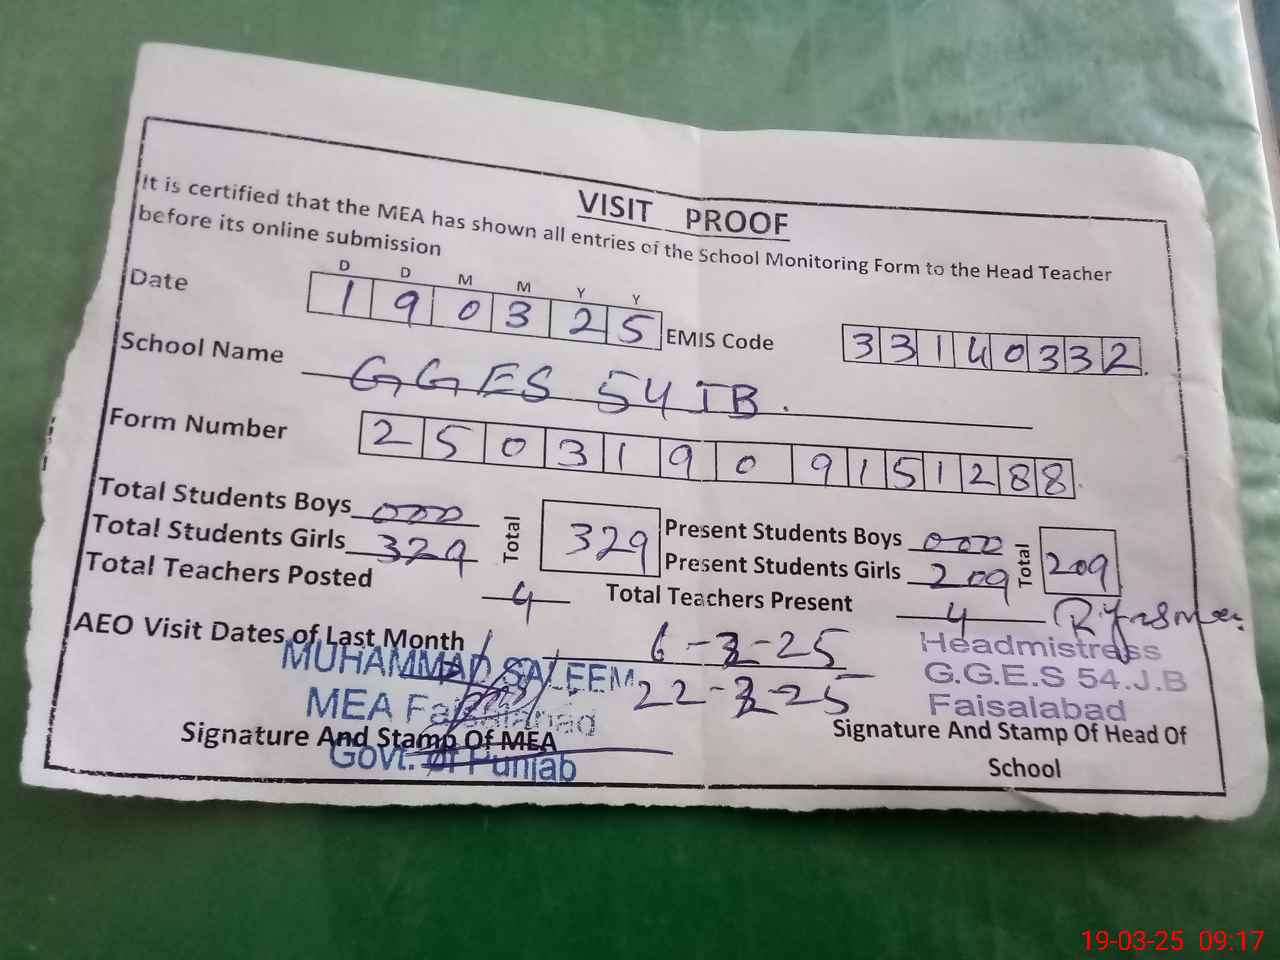 VISIT PROOF
It is certified that the MEA has shown all entries of the School Monitoring Form to the Head Teacher
before its online submission
D D M M Y Y
Date 1 9 0 3 2 5 EMIS Code 3 3 1 4 0 3 3 2
School Name GGES 54 JB.
Form Number 2 5 0 3 1 9 0 9 1 5 1 2 8 8
Total Students Boys 000 Total 329 Present Students Boys 000 Total 209
Total Students Girls 329 Present Students Girls 209
Total Teachers Posted 4 Total Teachers Present 4
AEO Visit Dates of Last Month 6-2-25
22-2-25
MUHAMMAD SALEEM
MEA Faisalabad
Govt. of Punjab
Signature And Stamp Of MEA
Headmistress
G.G.E.S 54.J.B
Faisalabad
Signature And Stamp Of Head Of
School
19-03-25 09:17